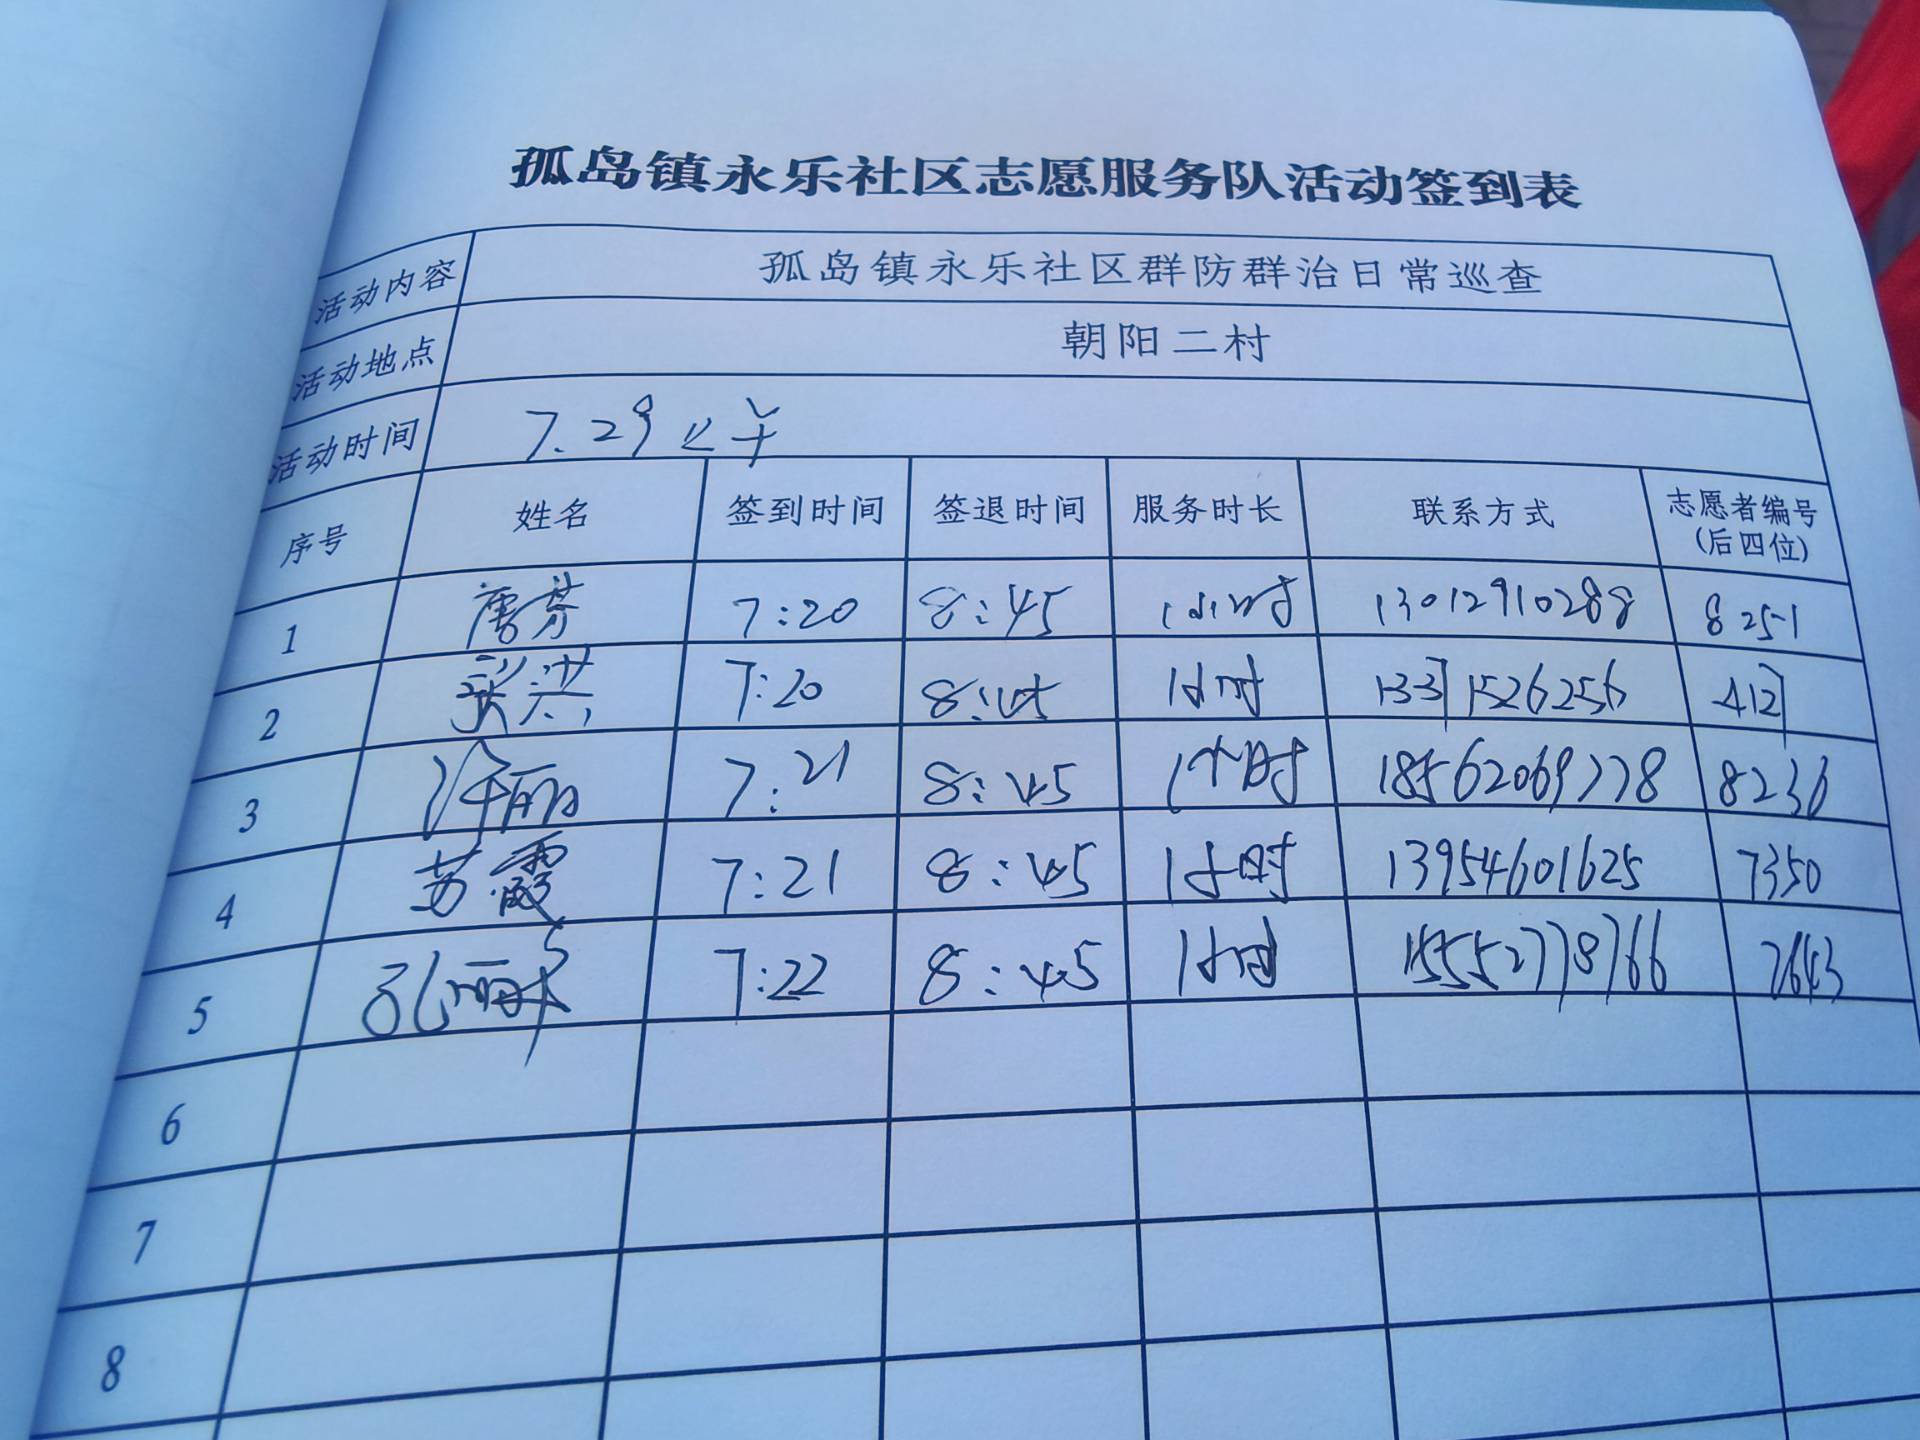 孤岛镇永乐社区志愿服务队活动签到表
活动内容 孤岛镇永乐社区群防群治日常巡查
活动地点 朝阳二村
活动时间 7.29 上午
序号 姓名 签到时间 签退时间 服务时长 联系方式 志愿者编号
(后四位)
1 唐芬 7:20 8:45 1小时 13012910288 8251
2 7:20 8:45 1小时 13371526256 4127
3 许丽 7:21 8:45 1小时 18562069778 8236
4 苏霞 7:21 8:45 1小时 13954601625 7350
5 7:22 8:45 1小时 15552778766 7643
6
7
8